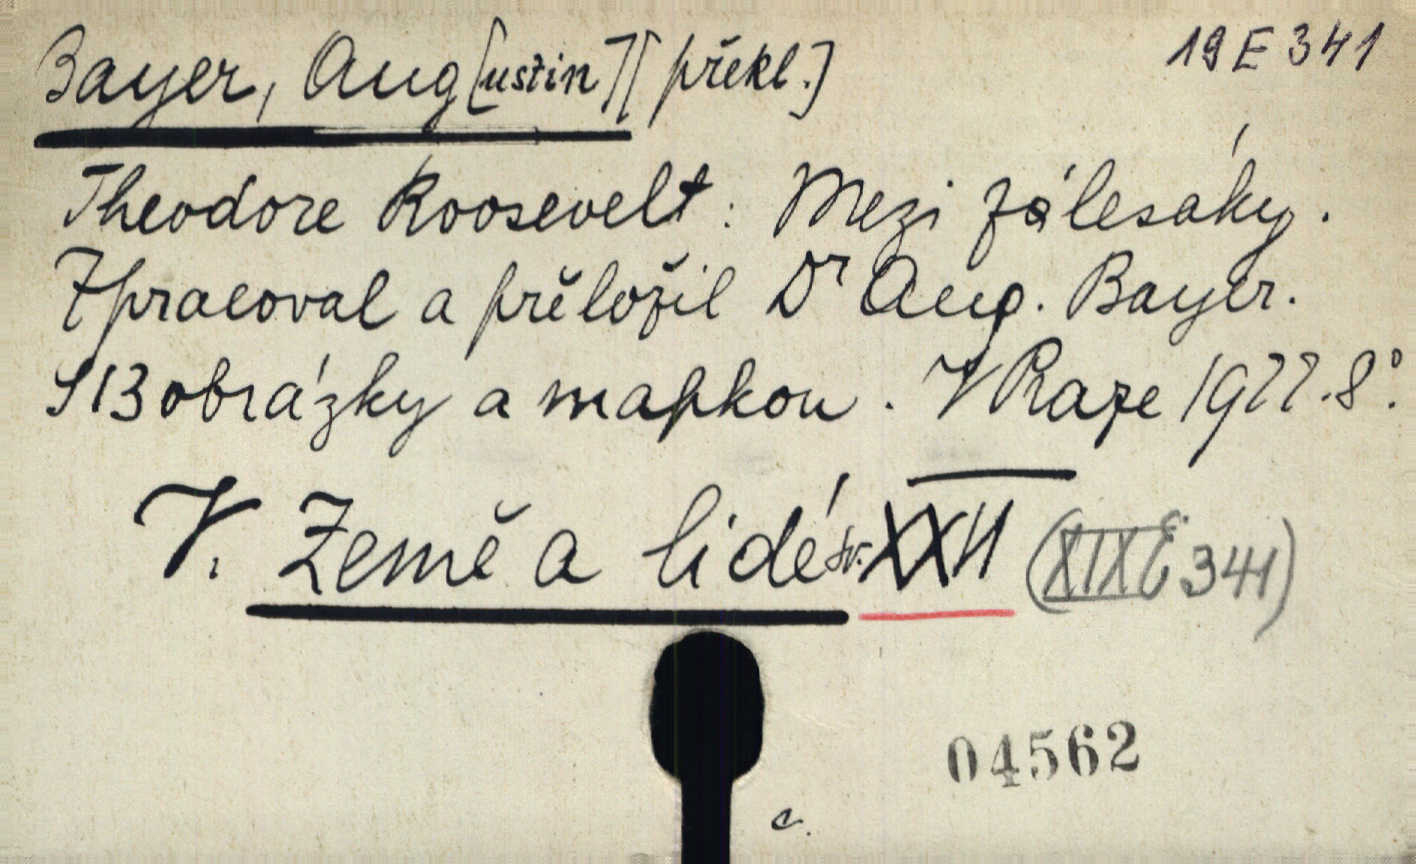 Bayer, Aug[ustin][překl.]
19 E 341
Theodore Roosevelt: Mezi zálesáky.
Zpracoval a přeložil Dr Aug. Bayer.
S 13 obrázky a mapkou. V Praze 1922. 8°.
V. Země a lidé sv. XXII (XIX E 341)
04562
c.